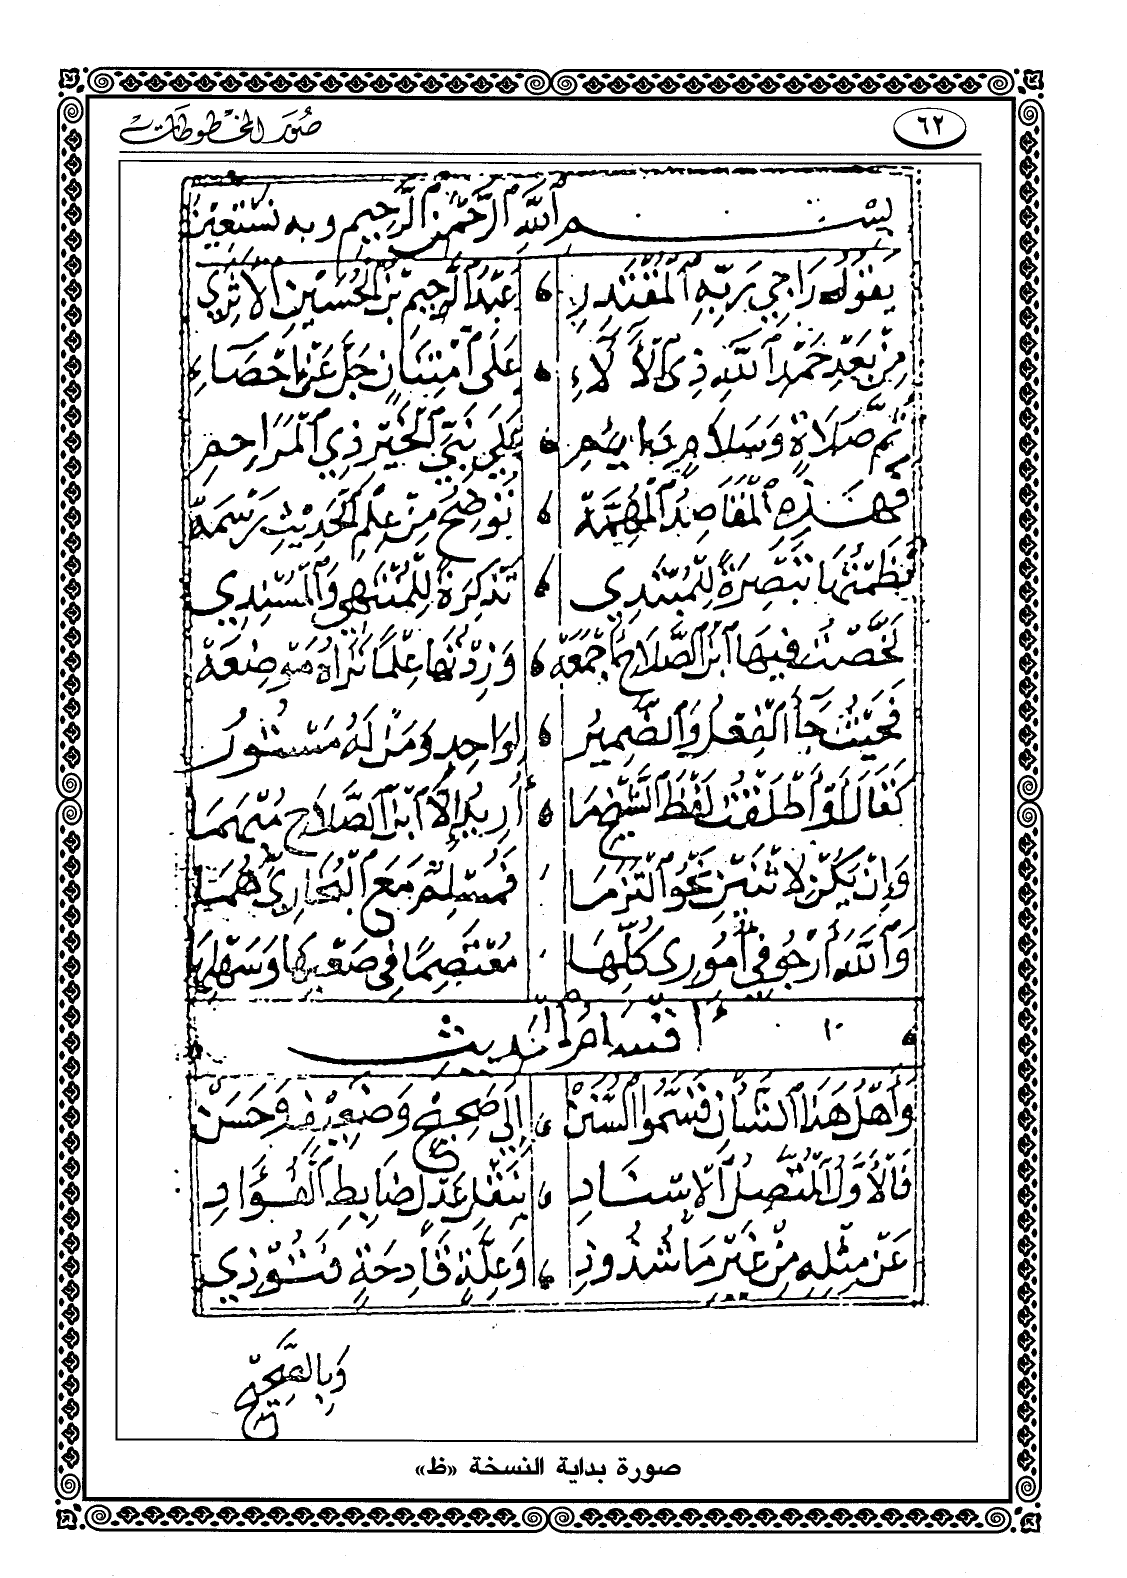 ٦٢
صُوَر المخطوطات
بِسْمِ ٱللَّهِ ٱلرَّحْمٰنِ ٱلرَّحِيمِ وبه نَسْتَعِين
يَقُولُ رَاجِي رَبِّهِ ٱلْمُقْتَدِرِ عَبْدُ ٱلرَّحِيمِ بْنُ ٱلْحُسَيْنِ الْأَثَرِي
مِنْ بَعْدِ حَمْدِ ٱللَّهِ ذِي ٱلْآلَاءِ عَلَى ٱمْتِنَانٍ جَلَّ عَنْ إِحْصَاءِ
ثُمَّ صَلَاةٍ وَسَلَامٍ دَايِمِ عَلَى نَبِيِّ ٱلْخَيْرِ ذِي ٱلْمَرَاحِمِ
فَهَذِهِ ٱلْمَقَاصِدُ ٱلْمُهِمَّة تُوَضِّحُ مِنْ عِلْمِ ٱلْحَدِيثِ رَسْمَهْ
نَظَمْتُهَا تَبْصِرَةً لِلْمُبْتَدِي تَذْكِرَةً لِلْمُنْتَهِي وَٱلْمُسْنِدِي
لَخَّصْتُ فِيهَا ٱبْنَ ٱلصَّلَاحِ أَجْمَعَهْ وَزِدْتُهَا عِلْمًا تَرَاهُ مَوْضِعَهْ
فَحَيْثُ جَاءَ ٱلْفِعْلُ وَٱلضَّمِيرُ لِوَاحِدٍ وَمَنْ لَهُ مَسْتُورُ
كَقَالَ أَوْ أَطْلَقْتُ لَفْظَ ٱلشَّيْخِ مَا أُرِيدُ إِلَّا ٱبْنَ ٱلصَّلَاحِ مُبْهَمَا
وَإِنْ يَكُنْ لِاثْنَيْنِ نَحْوُ ٱلْتَزَمَا فَمُسْلِمٌ مَعَ ٱلْبُخَارِيِّ هُمَا
وَٱللَّهَ أَرْجُو فِي أُمُورِي كُلِّهَا مُعْتَصِمًا فِي صَعْبِهَا وَسَهْلِهَا
١٠ أَقْسَامُ ٱلْحَدِيثِ
وَأَهْلُ هَذَا ٱلشَّأْنِ قَسَّمُوا ٱلسُّنَنْ إِلَى صَحِيحٍ وَضَعِيفٍ وَحَسَنْ
فَالْأَوَّلُ ٱلْمُتَّصِلُ ٱلْإِسْنَادِ بِنَقْلِ عَدْلٍ ضَابِطِ ٱلْفُؤَادِ
عَنْ مِثْلِهِ مِنْ غَيْرِ مَا شُذُوذِ وَعِلَّةٍ قَادِحَةٍ فَتُوذِي
وَبِالصَّحِيحِ
صورة بداية النسخة «ظ»